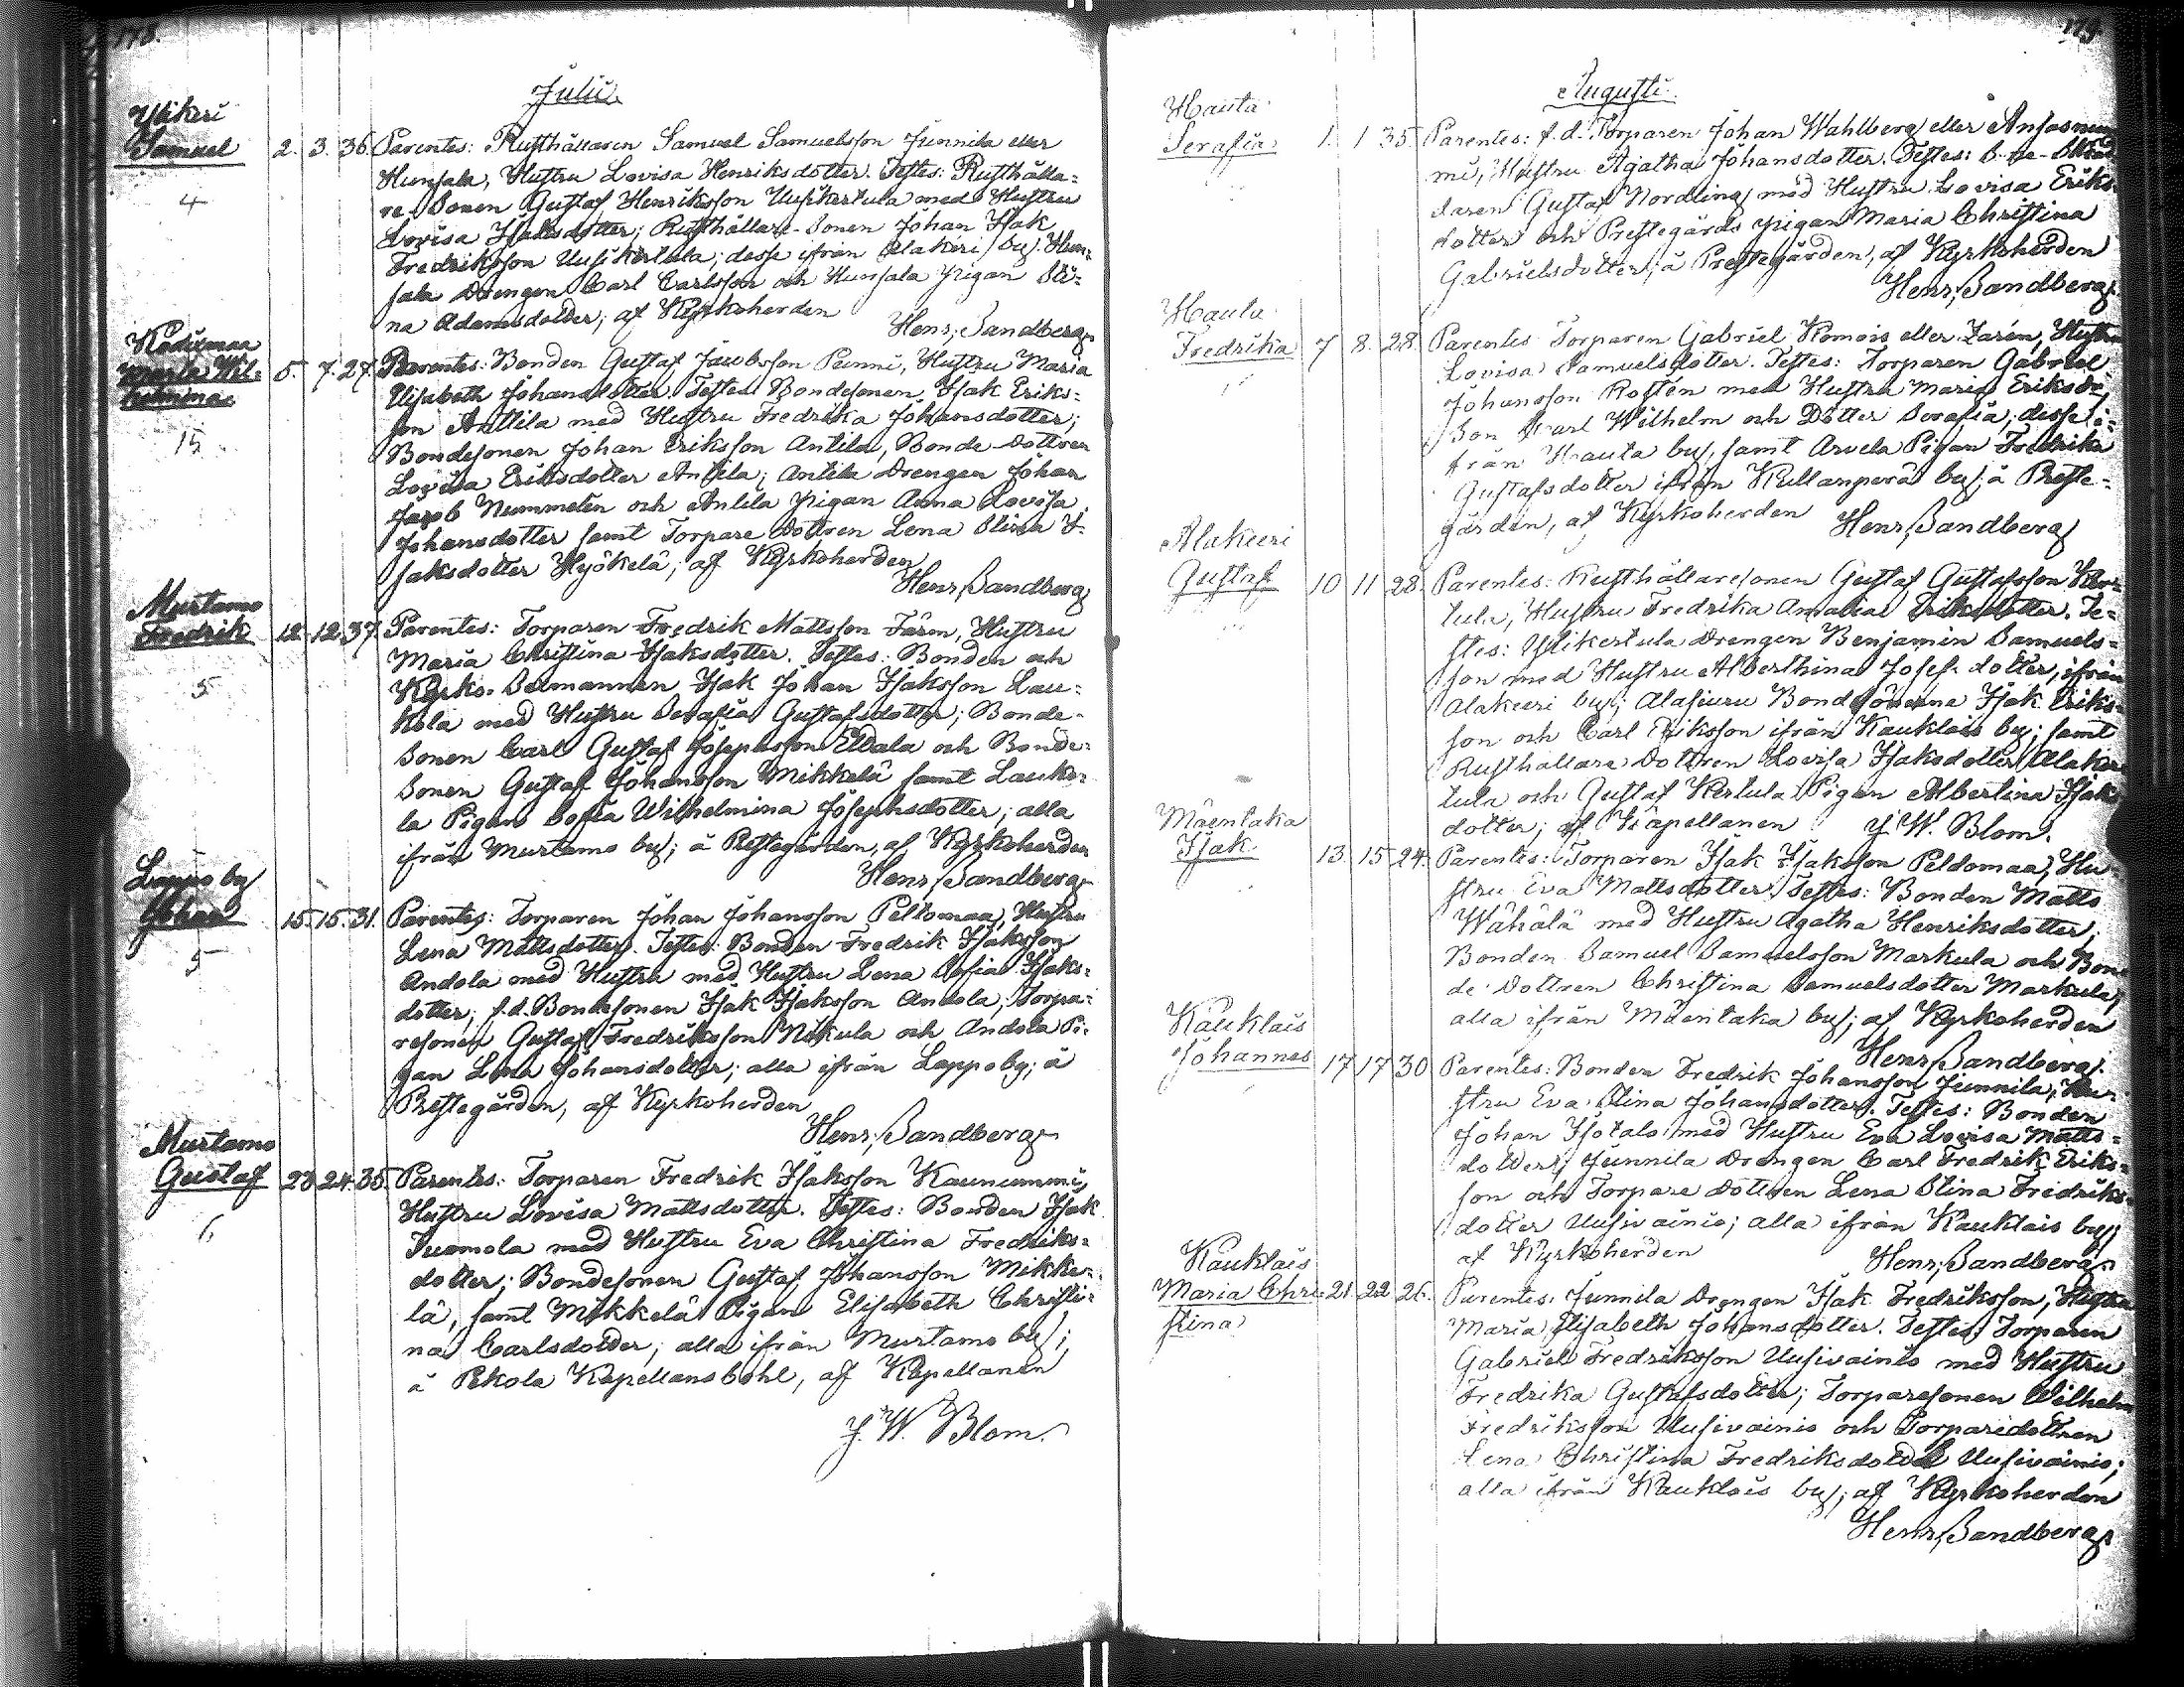 178.
Julii.
Ylikeri
Samuel 2. 3. 36. Parentes: Rusthållaren Samuel Samuelsson Junnila eller
Hunsala, Hustru Lovisa Henriksdotter. Testes: Rusthålla=
re-Sonen Gustaf Henriksson Uusikertula med Hustru
Lovisa Isaksdotter; Rusthållare-Sonen Johan Isak
Fredriksson Uusikertula; desse ifrån Alakeri by; Hun=
sala Drengen Carl Carlsson och Hunsala pigan Sti=
na Adamsdotter; af Kyrkoherden
Henr; Sandberg.
4
Kodismaa
Maria Wil=
helmina 5. 7. 27. Parentes: Bonden Gustaf Jacobsson Punni, Hustru Maria
Elisabeth Johansdotter. Testes: Bondesonen Isak Eriks=
son Anttila med Hustru Fredrika Johansdotter;
Bondesonen Johan Eriksson Antila, Bonde-Dottren
Lovisa Eriksdotter Antila; Antila Drengen Johan
Jacob Nummelin och Antila pigan Anna Lovisa
Johansdotter samt Torpare Dottren Lena Stina I=
saksdotter Hyökelä; af Kyrkoherden
Henr; Sandberg
15.
Murtamo
Fredrik 12. 12. 37. Parentes: Torparen Fredrik Mattsson Färm, Hustru
Maria Christina Isaksdotter. Testes: Bonden och
Kyrko-Sexmannen Isak Johan Isaksson Lau=
kola med Hustru Serafia Gustafsdotter; Bonde-
Sonen Carl Gustaf Josephsson Eldala och Bonde=
Sonen Gustaf Johansson Mikkelä samt Lauko=
la Pigan Sofia Wilhelmina Josephsdotter; alla
ifrån Murtamo by; å Prestegården, af Kyrkoherden
Henr; Sandberg
5
Lappo by
Johan 15. 15. 31. Parentes: Torparen Johan Johansson Peltomaa, Hustru
Lena Mattsdotter. Testes: Bonden Fredrik Isaksson
Andola med Hustru med Hustru Lena Sofia Isaks=
dotter; f.d. Bondesonen Isak Isaksson Andola; Torpa=
resonen Gustaf Fredriksson Nikula och Andola Pi=
gan Lena Johansdotter; alla ifrån Lappo by; å
Prestegården, af Kyrkoherden
Henr; Sandberg
5
Murtamo
Gustaf 23 24. 35. Parentes: Torparen Fredrik Isaksson Kaunummi,
Hustru Lovisa Mattsdotter. Testes: Bonden Isak
Tuomola med Hustru Eva Christina Fredriks=
dotter; Bondesonen Gustaf Johansson Mikke=
lä, samt Mikkelä Pigan Elisabeth Christi=
na Carlsdotter; alla ifrån Murtamo by;
å Pekola Kapellansbohl, af Kapellanen
J. W. Blom.
6
179
Augusti.
Hauta
Serafia 1. 1 35 Parentes: f.d. Torparen Johan Wahlberg eller
mi, Hustru Agatha Johansdotter. Testes:
daren Gustaf Nordling med Hustru Lovisa Eriks=
dotter och Prestegårds pigan Maria Christina
Gabrielsdotter; å Prestegården, af Kyrkoherden
Henr; Sandberg.
Hauta
Fredrika 7 8. 28. Parentes Torparen Gabriel Komois eller Zarén, Hustru
Lovisa Samuelsdotter. Testes: Torparen Gabriel
Johansson Rostén med Hustru Maria Eriksdr,
Son Karl Wilhelm och Dotter Serafia; desse i=
från Hauta by, samt Arvela Pigan Fredrika
Gustafsdotter ifrån Kullanperä by; å Preste=
gården, af Kyrkoherden
Henr; Sandberg
Alakeeri
Gustaf 10 11 28. Parentes: Rusthållaresonen Gustaf Gustafsson Ker=
tula, Hustru Fredrika Amalia Eriksdotter. Te=
stes: Ylikertula Drengen Benjamin Samuels=
son med Hustru Alberthina Josefsdotter, ifrån
Alakeeri by; Alasiuru Bondesönerna Isak Eriks=
son och Carl Eriksson ifrån Kauklais by; samt
Rusthållare Dottren Lovisa Isaksdotter Alaker
tula och Gustaf Kertula Pigan Albertina Isaks
dotter; af Kapellanen J. W. Blom.
Mäentaka
Isak 13. 15 24. Parentes: Torparen Isak Isaksson Peldomaa, Hu=
stru Eva Mattsdotter. Testes: Bonden Matts
Wähälä med Hustru Agatha Henriksdotter;
Bonden Samuel Samuelsson Markula och Bon=
de-Dottren Christina Samuelsdotter Markula;
alla ifrån Mäentaka by; af Kyrkoherden
Henr; Sandberg.
Kauklais
Johannes 17 17 30 Parentes: Bonden Fredrik Johansson Junnila, Hu=
stru Eva Stina Johansdotter. Testes: Bonden
Johan Isotalo med Hustru Eva Lovisa Matts=
dotter; Junnila Drengen Carl Fredrik Eriks=
son och Torpare Dottren Lena Stina Fredriks=
dotter Uusivainio; alla ifrån Kauklais by;
af Kyrkoherden
Henr; Sandberg
Kauklais
Maria Chri= 21 22 26. Parentes: Junnila Drengen Isak Fredriksson, Hustru
stina
Maria Elisabeth Johansdotter. Testes: Torparen
Gabriel Fredriksson Uusivainio med Hustru
Fredrika Gustafsdotter; Torparesonen Wilhelm
Fredriksson Uusivainio och Torparedottren
Lena Christina Fredriksdotter Uusivainio;
alla ifrån Kauklais by; af Kyrkoherden
Henr; Sandberg